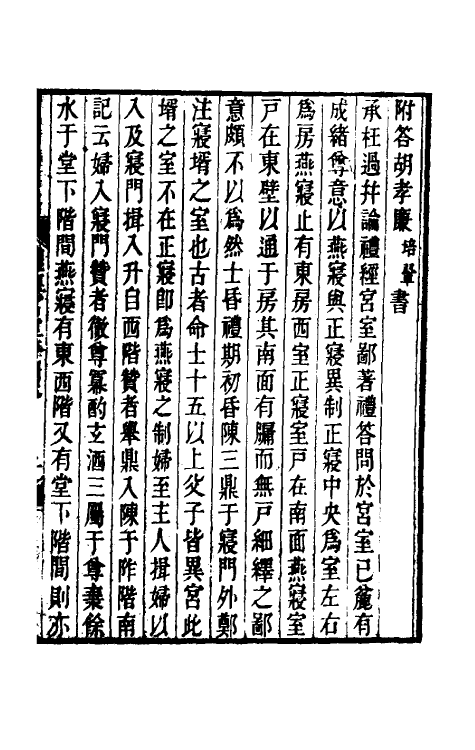 附答胡孝廉培翬書
承枉過幷論禮經宮室鄙著禮答問於宮室已麄有
成緒尊意以燕寢與正寢異制正寢中央爲室左右
爲房燕寢止有東房西室正寢室戶在南面燕寢室
戶在東壁以通于房其南面有牖而無戶細繹之鄙
意頗不以爲然士昏禮期初昏陳三鼎于寢門外鄭
注寢壻之室也古者命士十五以上父子皆異宮此
壻之室不在正寢卽爲燕寢之制婦至主人揖婦以
入及寢門揖入升自西階贊者舉鼎入陳于阼階南
記云婦入寢門贊者徹尊冪酌玄酒三屬于尊棄餘
水于堂下階間燕寢有東西階又有堂下階間則亦